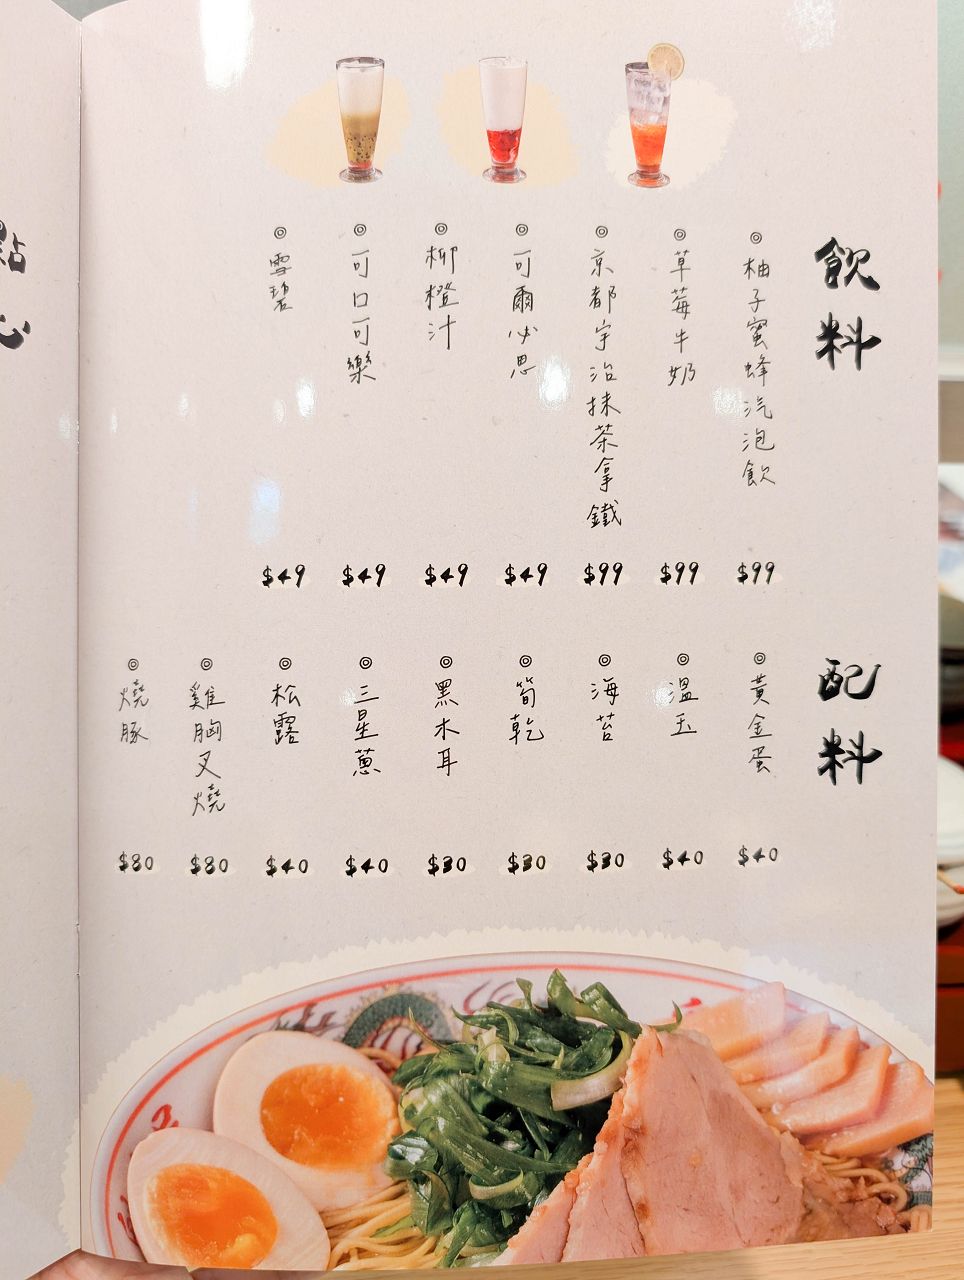 飲料
◎柚子蜜蜂汽泡飲 $99
◎草莓牛奶 $99
◎京都宇治抹茶拿鐵 $99
◎可爾必思 $49
◎柳橙汁 $49
◎可口可樂 $49
◎雪碧 $49
配料
◎黃金蛋 $40
◎溫玉 $40
◎海苔 $30
◎筍乾 $30
◎黑木耳 $30
◎三星蔥 $40
◎松露 $40
◎雞胸叉燒 $80
◎燒豚 $80
點心